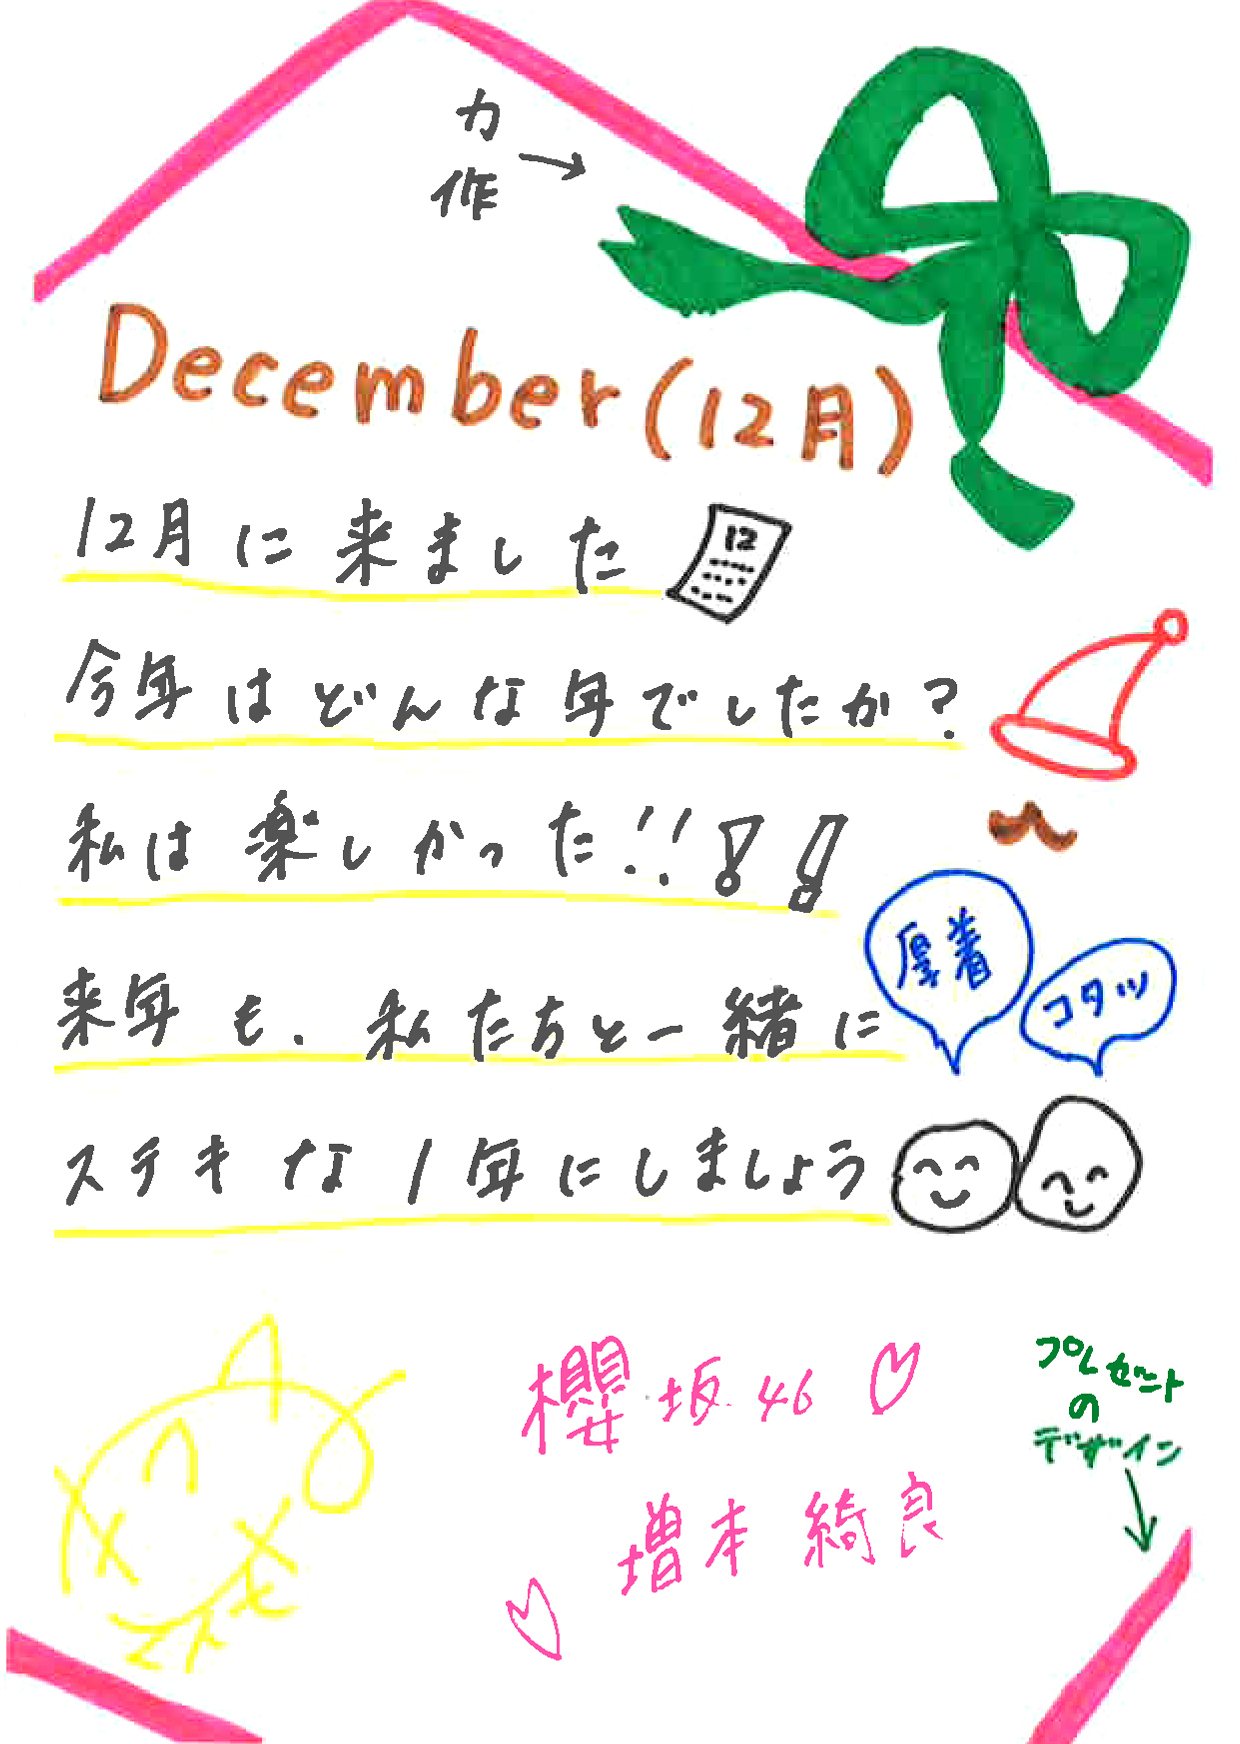 力作→
December(12月)
12月に来ました
12
今年はどんな年でしたか?
私は楽しかった!!!!
厚着
コタツ
来年も、私たちと一緒に
ステキな1年にしましょう
櫻坂46♡
プレゼント
の
デザイン
↓
増本綺良
♡